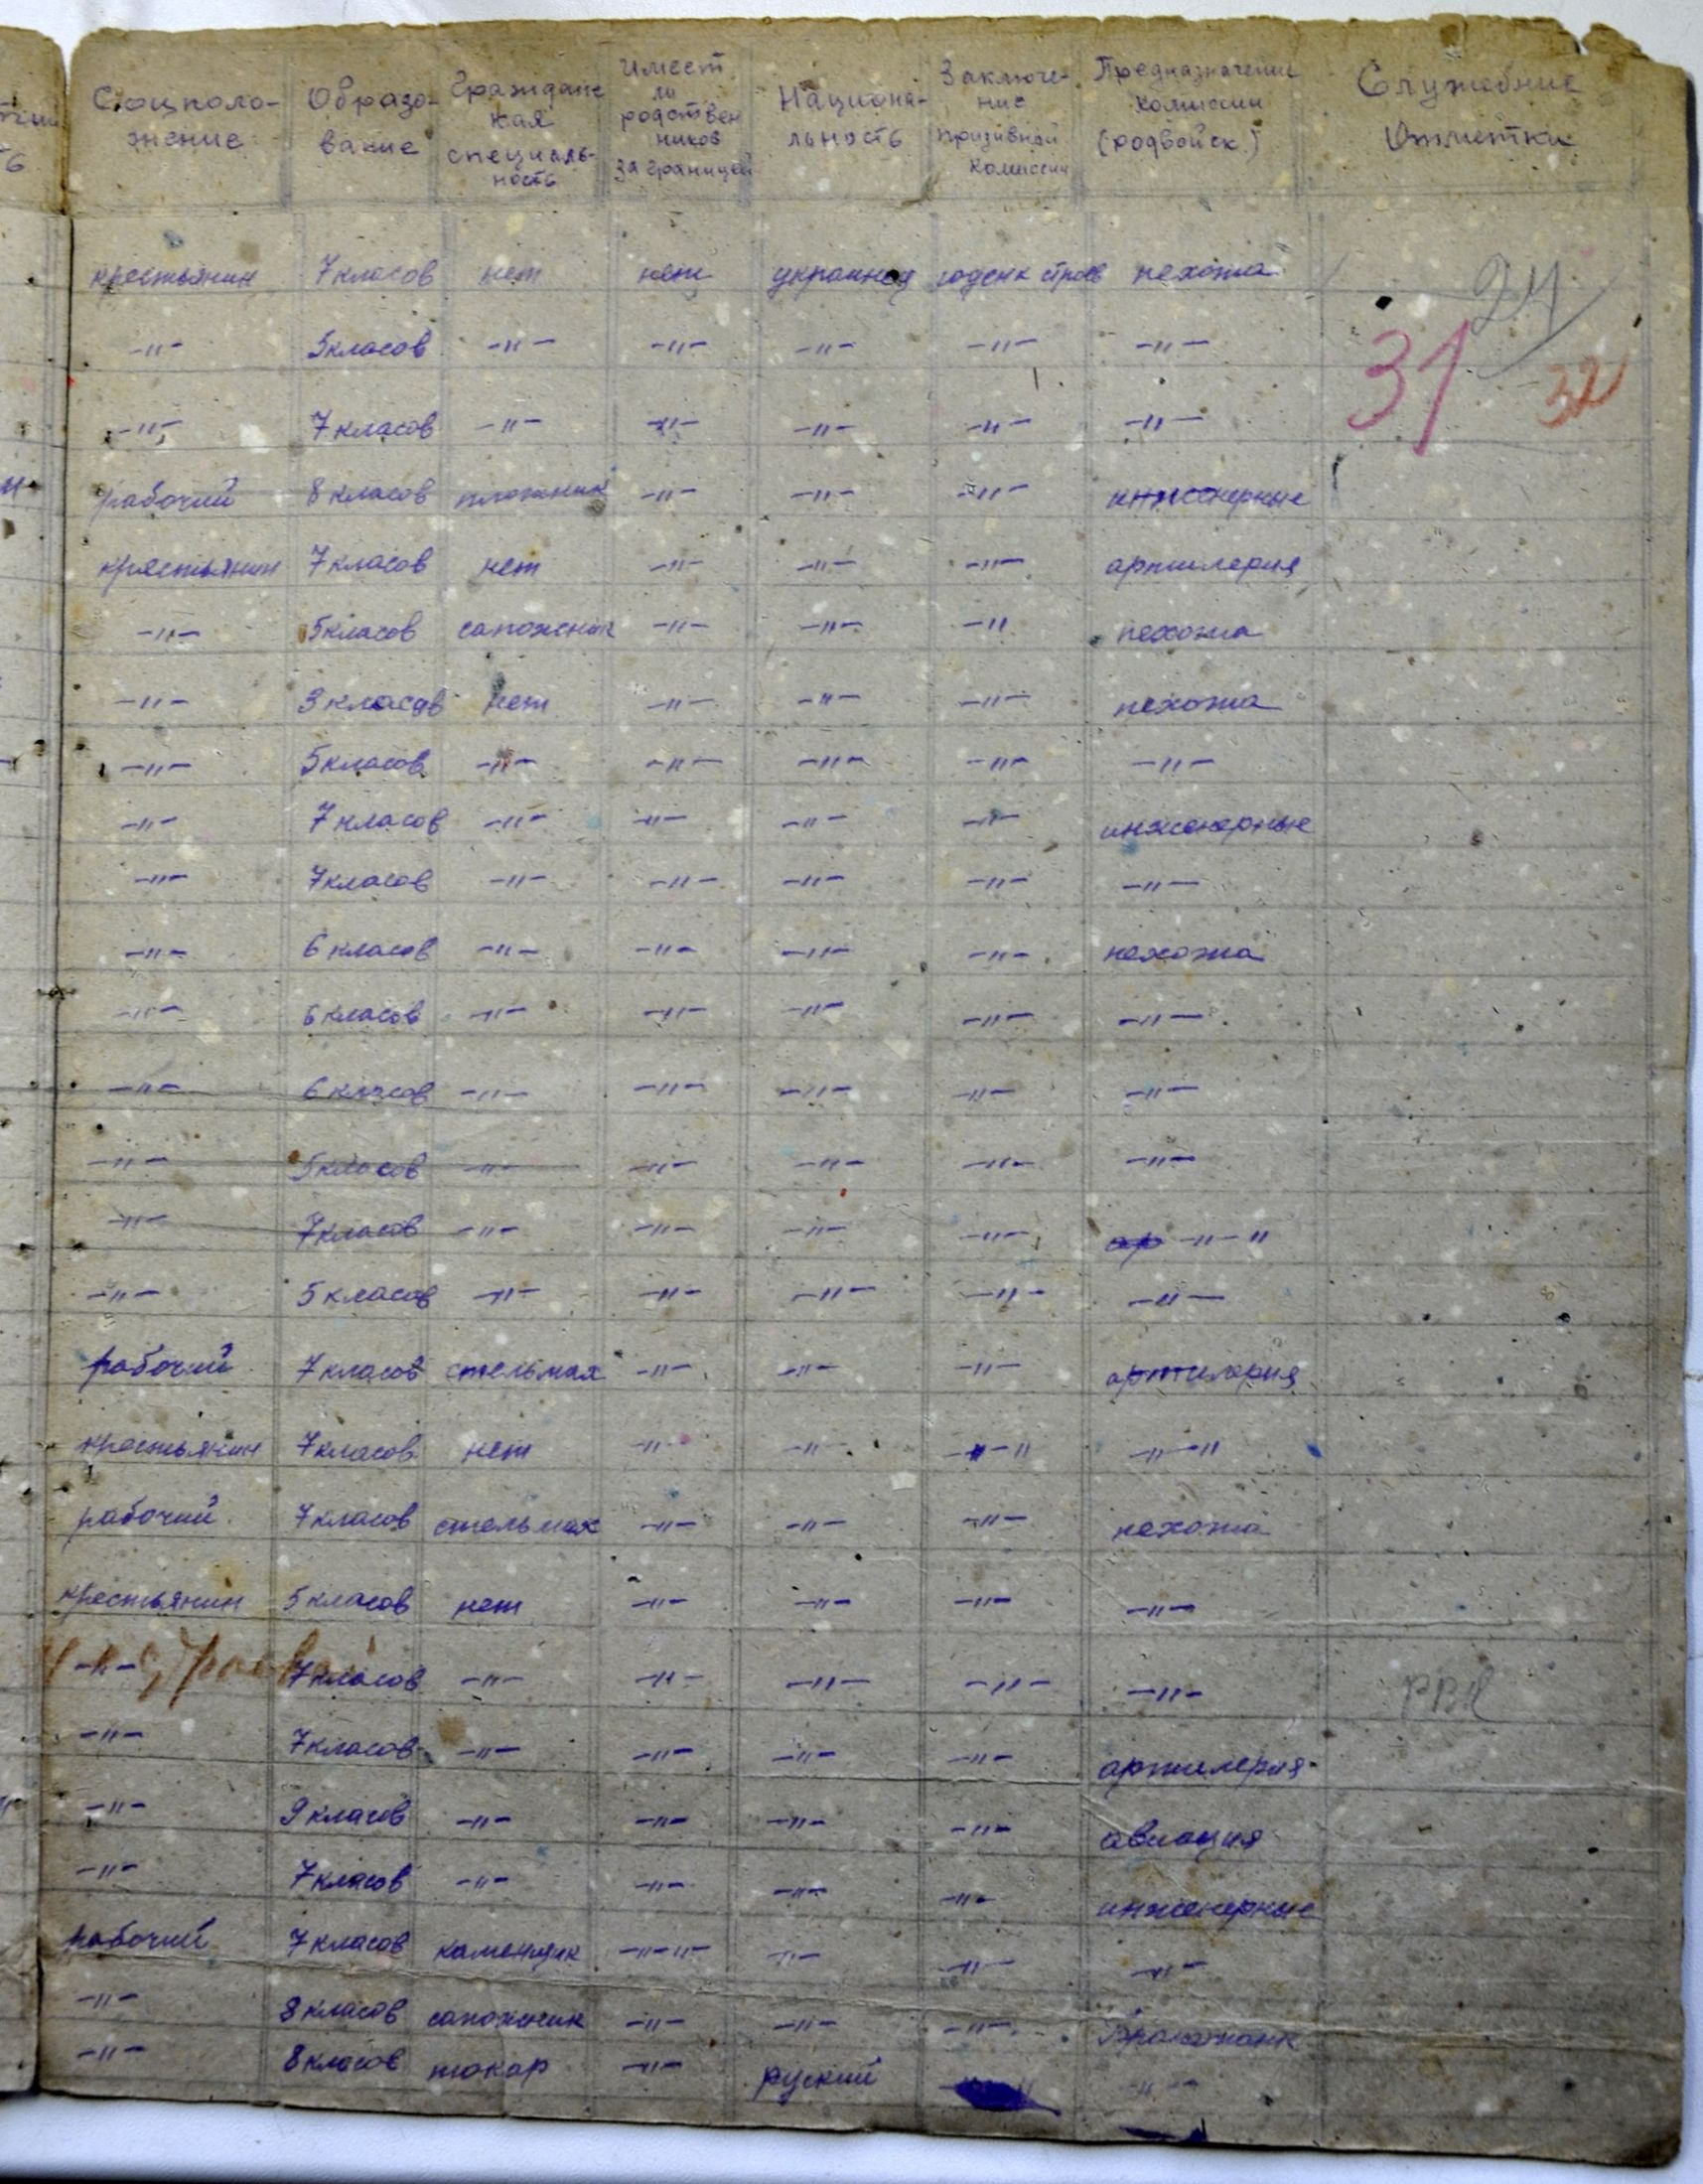 Соцполо- Образо- Граждане Имеет Национа- Заключе- Предназначение Служебние
жение вание кая ли льность ние комиссии Отметки
специаль- родствен призивной (родвойск.)
ность ников комиссии
за границей
крестьянин 7 класов нет нет украинец годен к строев пехота 24
-"- 5 класов -"- -"- -"- -"- -"- 31 32
-"- 7 класов -"- -"- -"- -"- -"-
рабочий 8 класов плотник -"- -"- -"- инженерные
крестьянин 7 класов нет -"- -"- -"- артилерия
-"- 5 класов сапожник -"- -"- -" пехота
-"- 3 класов нет -"- -"- -"- пехота
-"- 5 класов -"- -"- -"- -"- -"-
-"- 7 класов -"- -"- -"- -"- инженерные
-"- 7 класов -"- -"- -"- -"- -"-
-"- 6 класов -"- -"- -"- -"- пехота
-"- 6 класов -"- -"- -"- -"- -"-
-"- 6 класов -"- -"- -"- -"- -"-
-"- 5 класов -"- -"- -"- -"- -"-
-"- 7 класов -"- -"- -"- -"- ар -"-"
-"- 5 класов -"- -"- -"- -"- -"-
рабочий 7 класов стельмах -"- -"- -"- артилерия
крестьянин 7 класов нет -"- -"- -"-" -"-"
рабочий 7 класов стельмах -"- -"- -"- пехота
крестьянин 5 класов нет -"- -"- -"- -"-
-"- 7 класов -"- -"- -"- -"- -"- РВК
-"- 7 класов -"- -"- -"- -"- артилерия
-"- 9 класов -"- -"- -"- -"- авиация
-"- 7 класов -"- -"- -"- -"- инженерные
рабочий 7 класов каменщик -"-"- -"- -"- -"-
-"- 8 класов сапожник -"- -"- -"-
-"- 8 класов токар -"- руский -"-